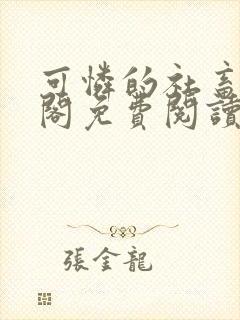 可憐的社畜
閣免費閱讀
張金龍